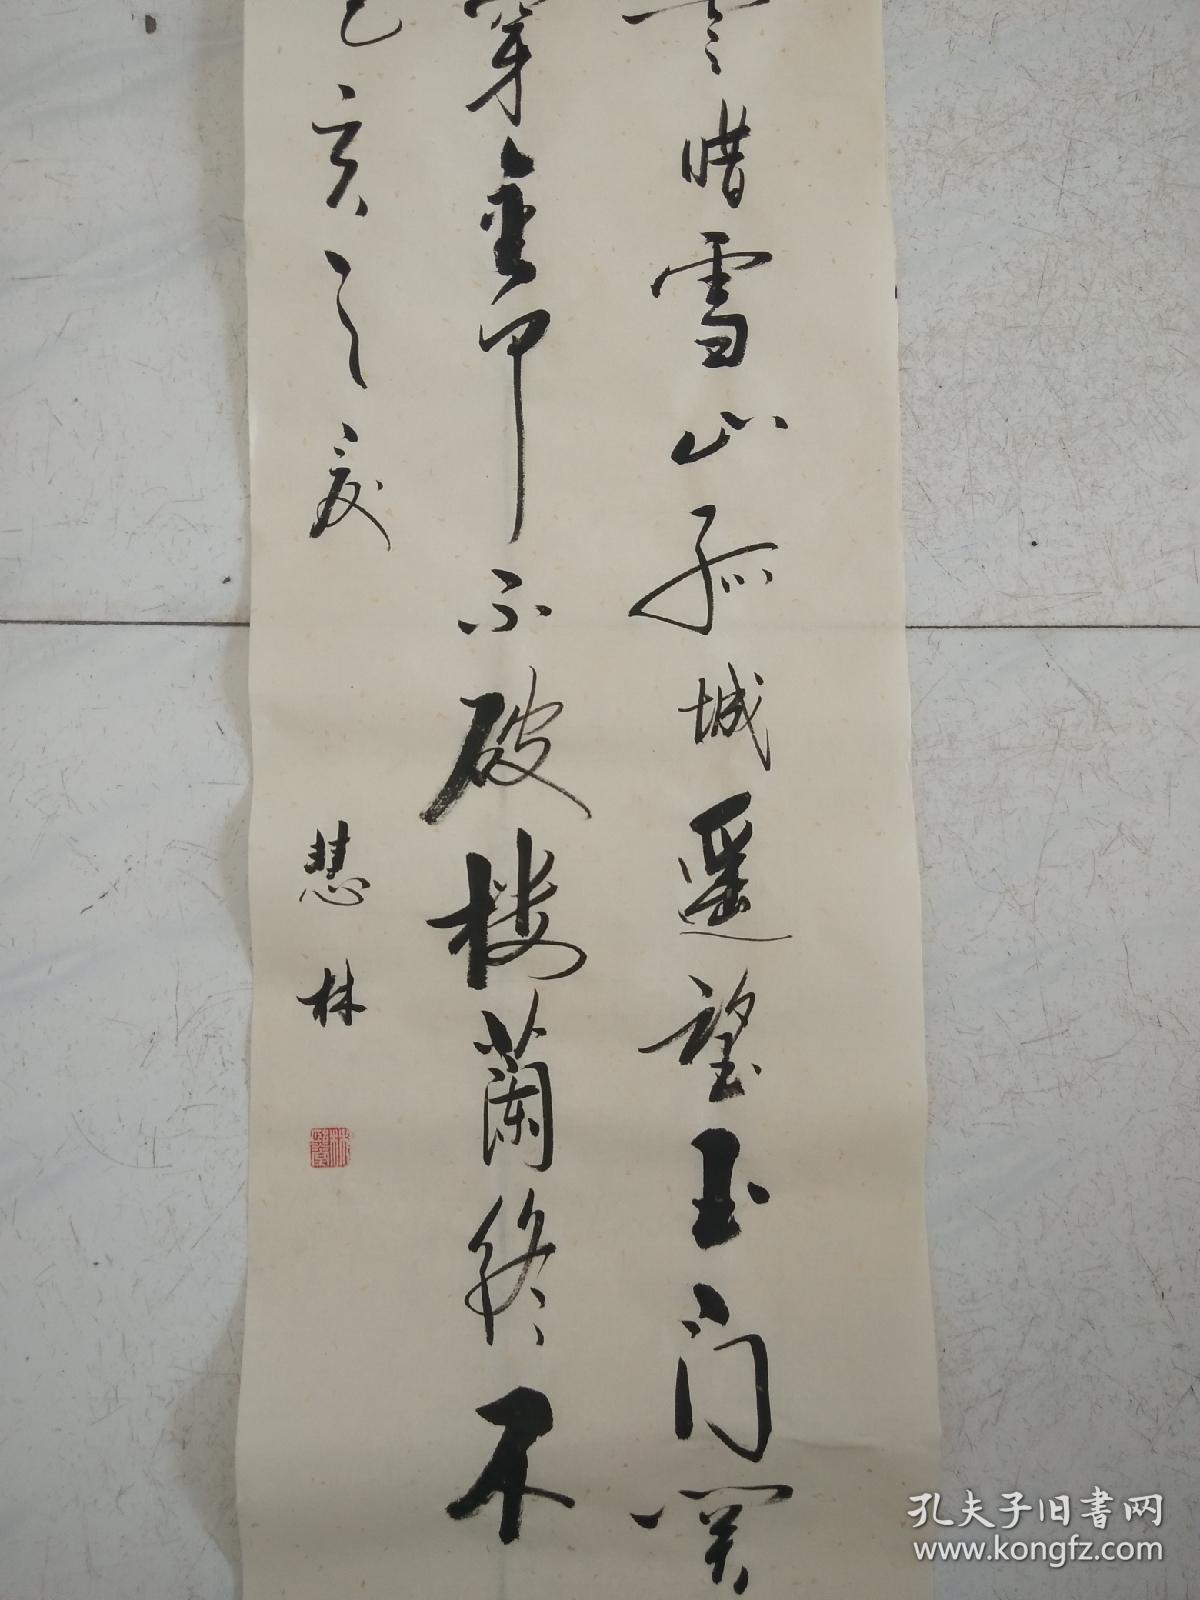 云暗雪山孤城遥望玉门关
穿金甲不破楼蘭终不
己亥之夏
慧林
孔夫子旧书网
www.kongfz.com